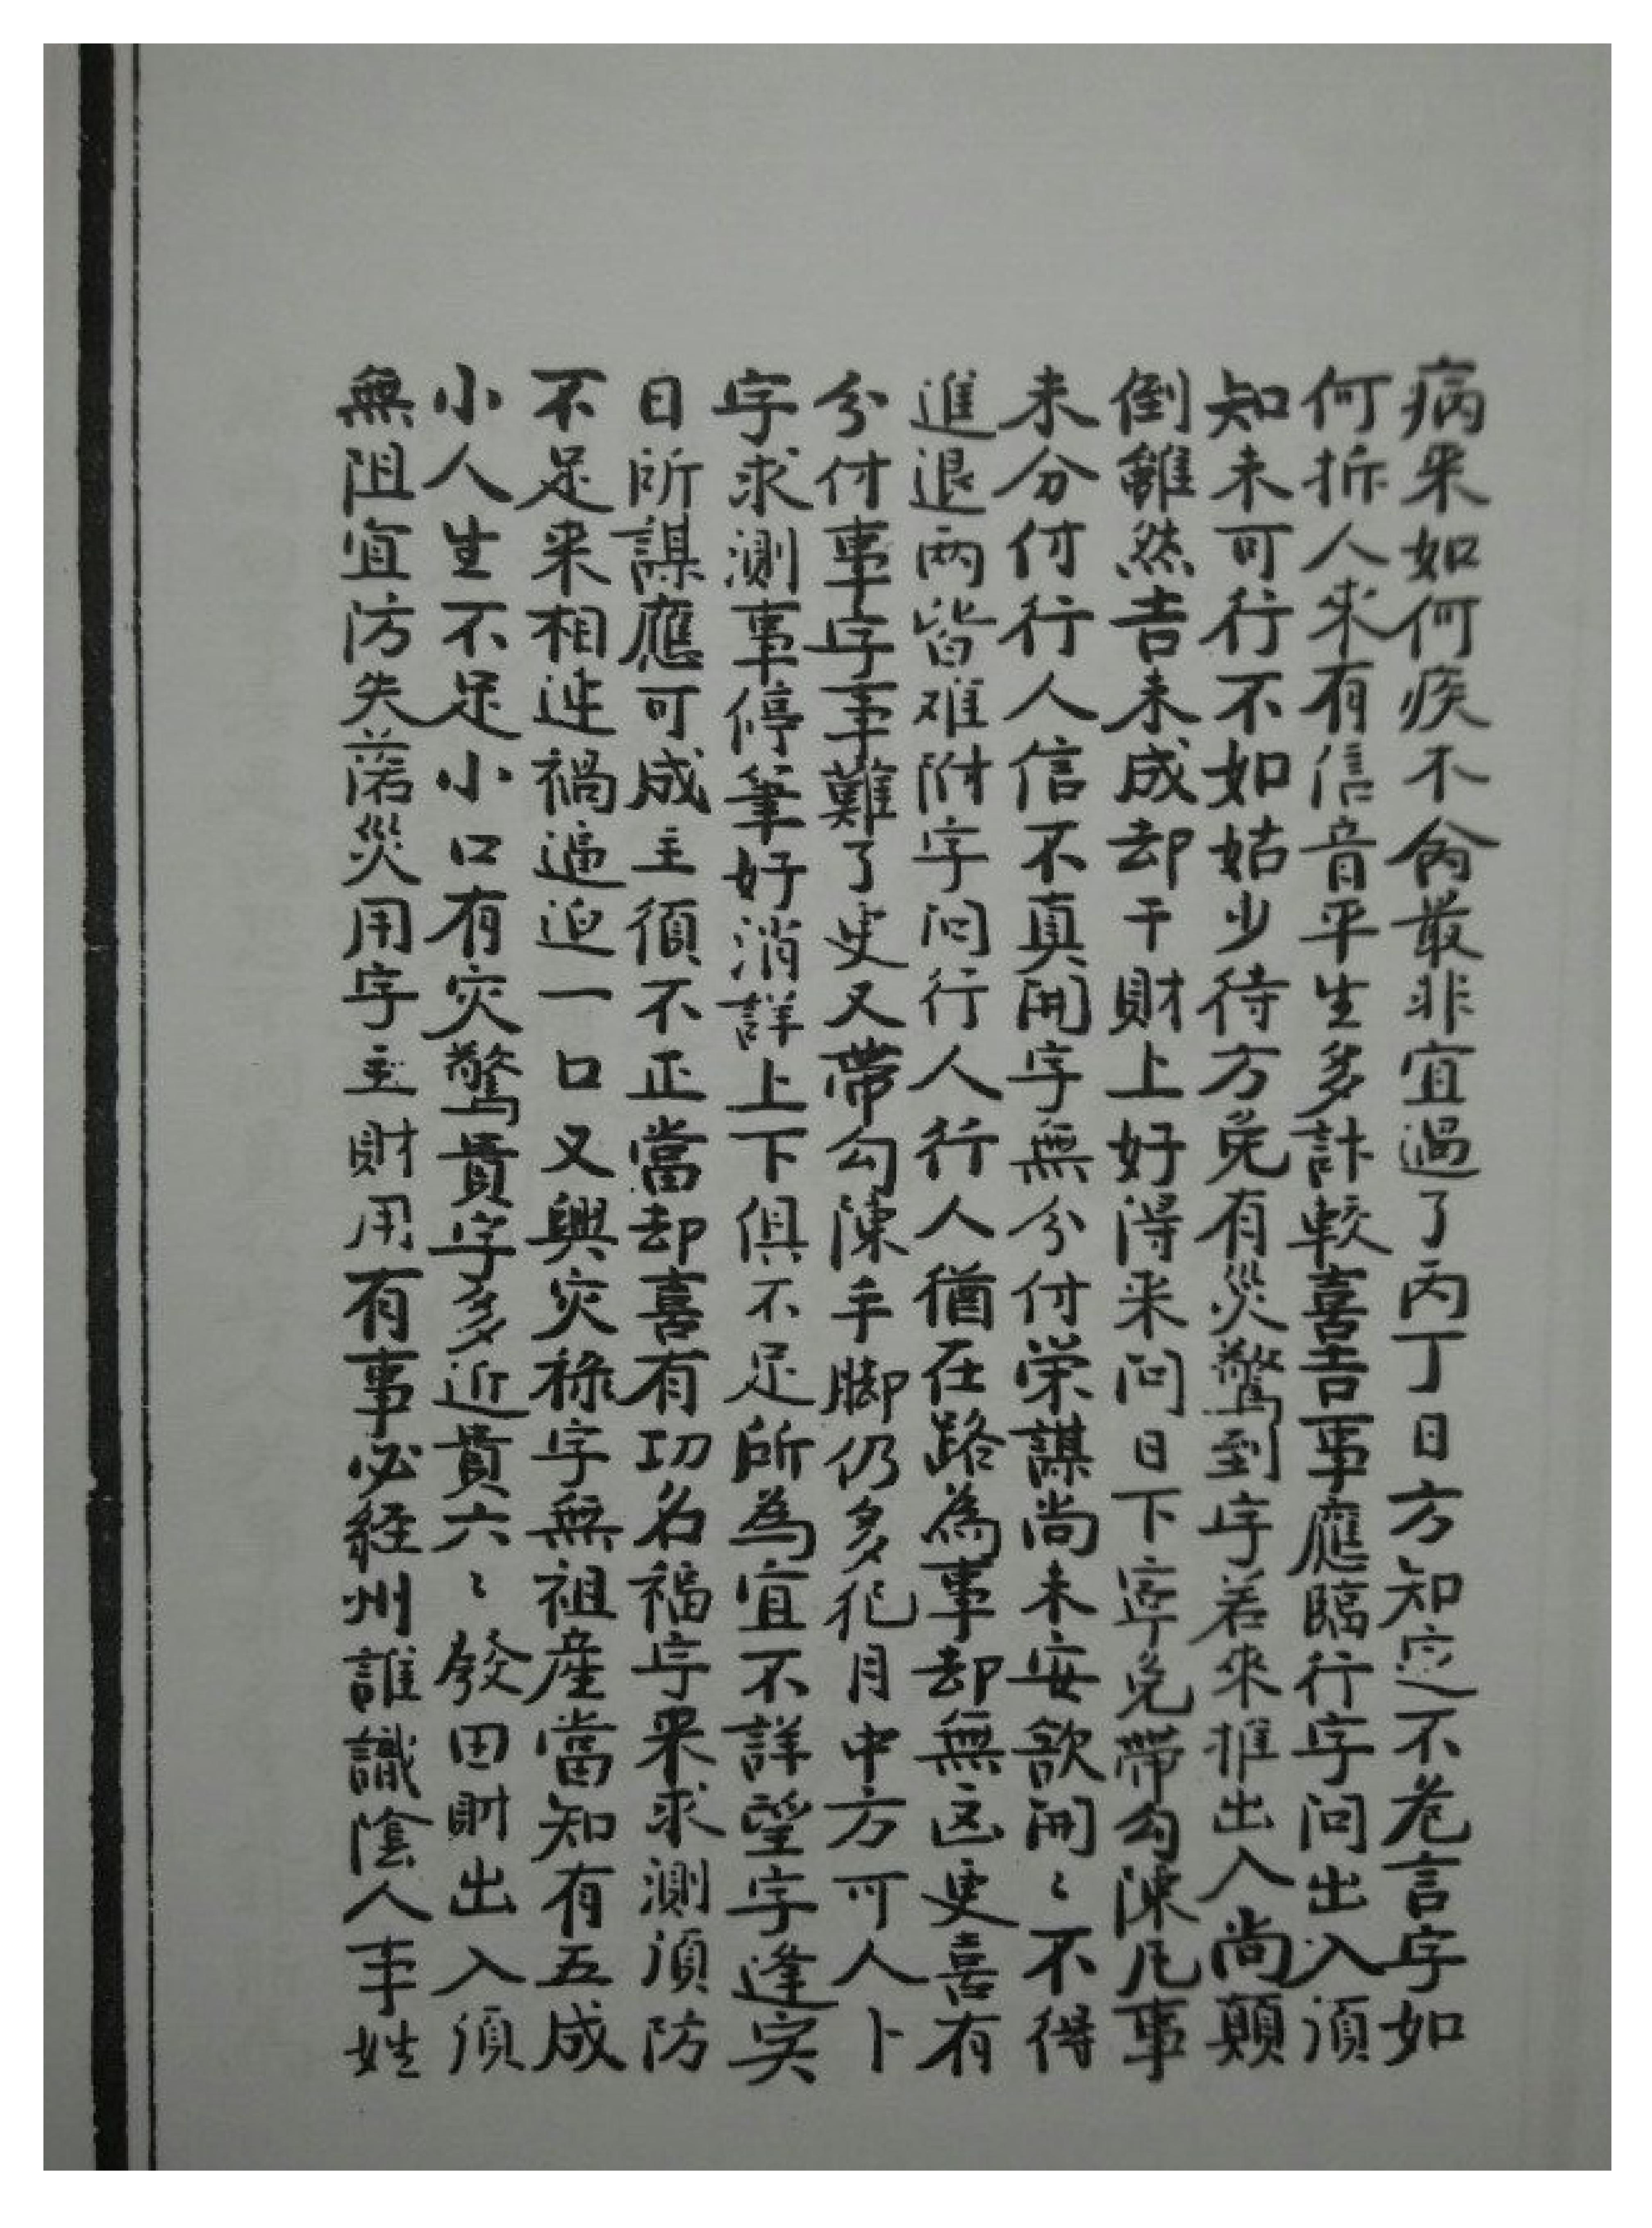 病来如何疾不禽最非宜過了丙丁日方知定不危言字如
何拆人求有信音平生多計較喜吉事應臨行字问出入須
知未可行不如姑少待方免有災驚到字若來推出入尚顛
倒雖然吉未成却干財上好淂来问日下寧免帶勾陳凡事
未分付行人信不真開字無分付荣謀尚未安欲開〻不得
進退两皆难附字问行人行人猶在路為事却無凶更喜有
分付事字事難了更又帶勾陳手脚仍多犯月中方可人卜
字求測事停筆好消詳上下俱不足所為宜不詳望字逢寅
日所謀應可成主須不正當却喜有功名福字来求測須防
不足来相迯禍逼迫一口又興灾祿字無祖産當知有五成
小人生不足小口有灾驚貴字多近貴六〻發田財出入須
無阻宜防失落災用字主財用有事必経州誰識陰人事姓